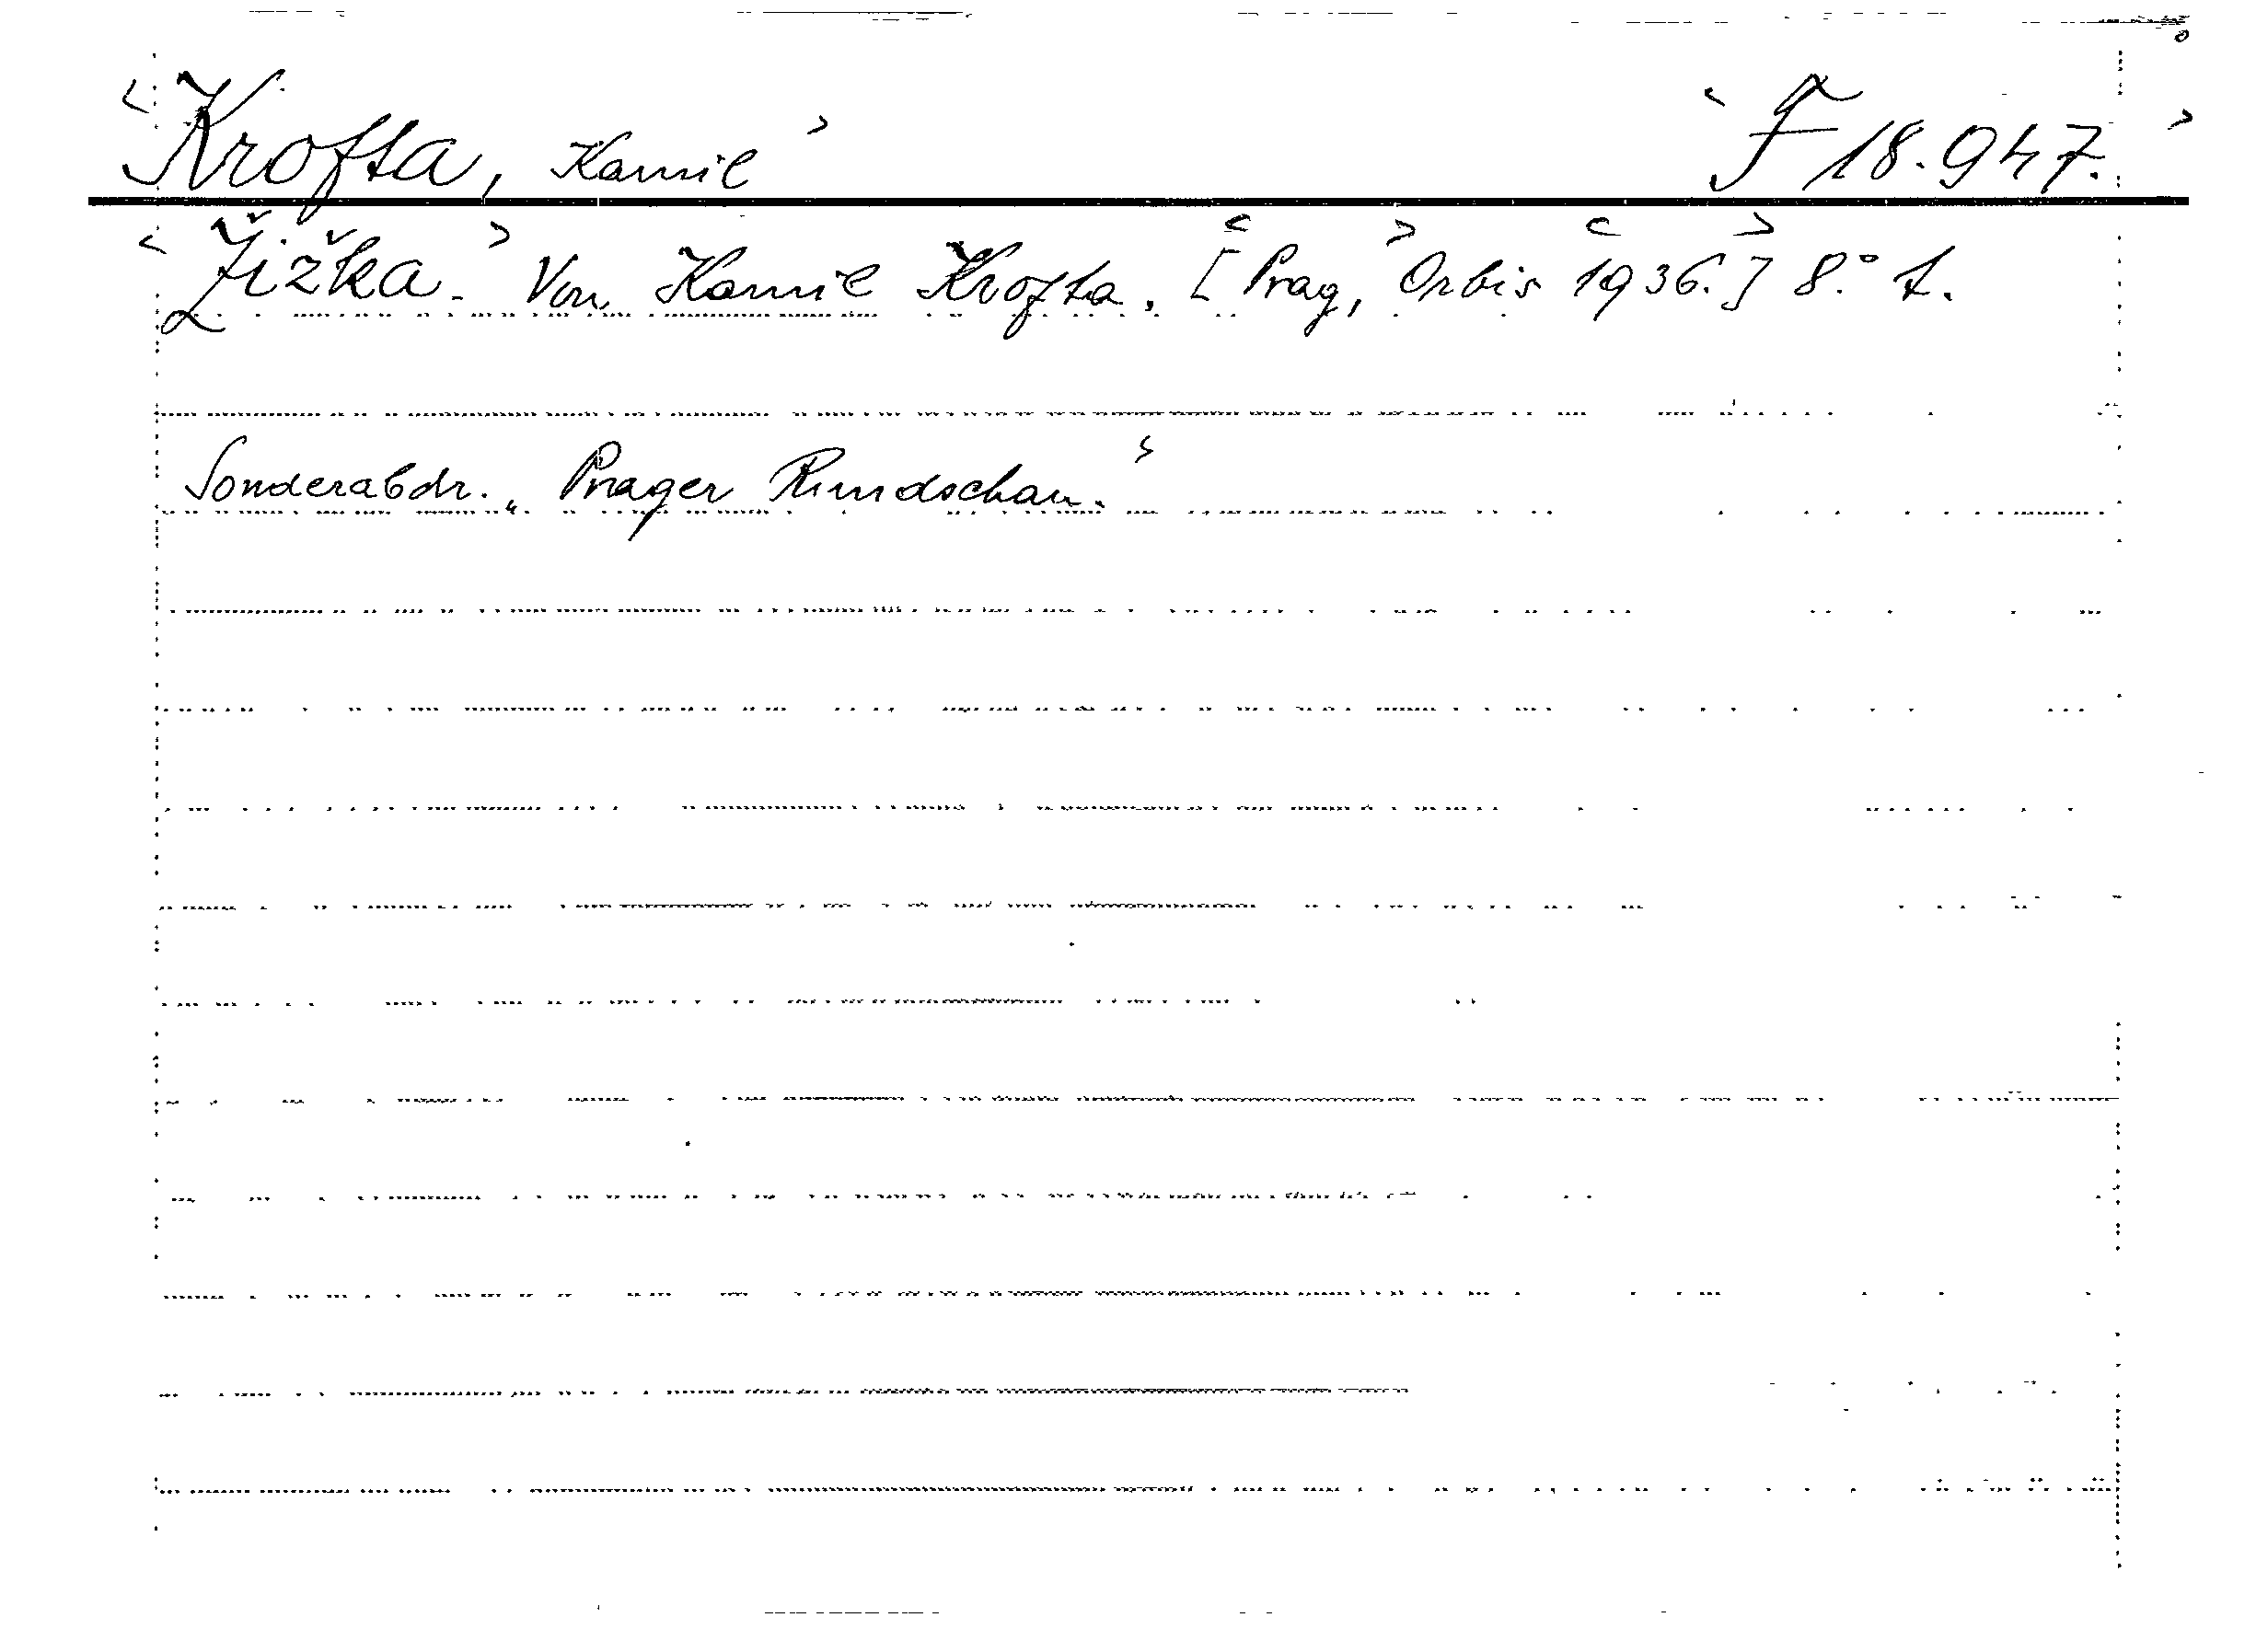 <Krofta, Kamil> <F 18.947.>
<Žižka.> Von Kamil Krofta. [<Prag,> Orbis <1936.>] 8.°
Sonderabdr. „Prager Rundschau.“